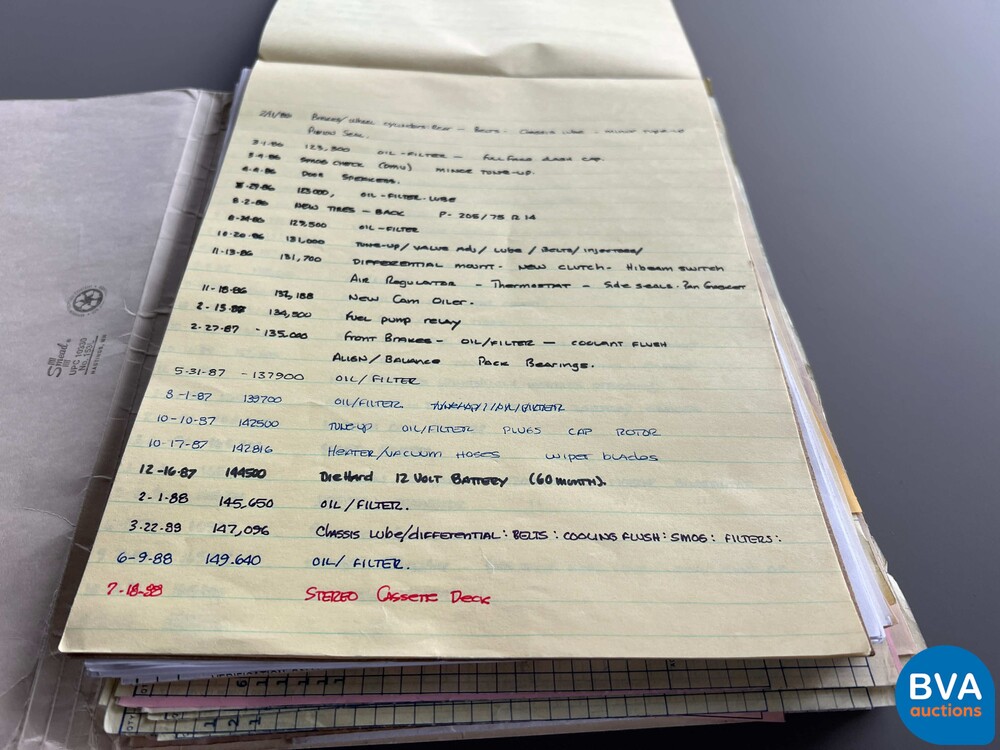 2/11/86 Brakes/Wheel cylinders: Rear - Belts - Chassis Lube - Minor Tune-up
Pinion Seal.
3-1-86 123,500 OIL - FILTER - FULL FIELD CAP.
3-4-86 SMOG CHECK (DMV) MINOR TUNE-UP.
4-4-86 Door SPEAKERS.
5-29-86 OIL-FILTER-LUBE
8-2-86 NEW TIRES - BACK P-205/75 R 14
8-24-86 129,500 OIL-FILTER
10-20-86 131,000 TUNE-UP/VALVE ADJ/LUBE/BELTS/INJECTORS/
11-13-86 131,700 DIFFERENTIAL MOUNT - NEW CLUTCH - HIBEAM SWITCH
AIR REGULATOR - THERMOSTAT - SIDE SEALS. PAN GASKET
11-18-86 132,188 NEW CAM OILER.
2-15-87 134,500 FUEL PUMP RELAY
2-27-87 -135,000 FRONT BRAKES - OIL/FILTER - COOLANT FLUSH
ALIGN/BALANCE PACK BEARINGS.
5-31-87 -137900 OIL/FILTER
8-1-87 139700 OIL/FILTER
10-10-87 142500 TUNE-UP OIL/FILTER PLUGS CAP ROTOR
10-17-87 142816 HEATER/VACUUM HOSES WIPER BLADES
12-16-87 144500 DieHard 12 VOLT BATTERY (60 MONTH).
2-1-88 145,650 OIL/FILTER.
3-22-88 147,096 CHASSIS LUBE/DIFFERENTIAL: BELTS: COOLING FLUSH: SMOG: FILTERS:
6-9-88 149.640 OIL/FILTER.
7-18-88 STEREO CASSETE DECK
Smead®
UPC 10330
HASTINGS, MN
BVA
auctions